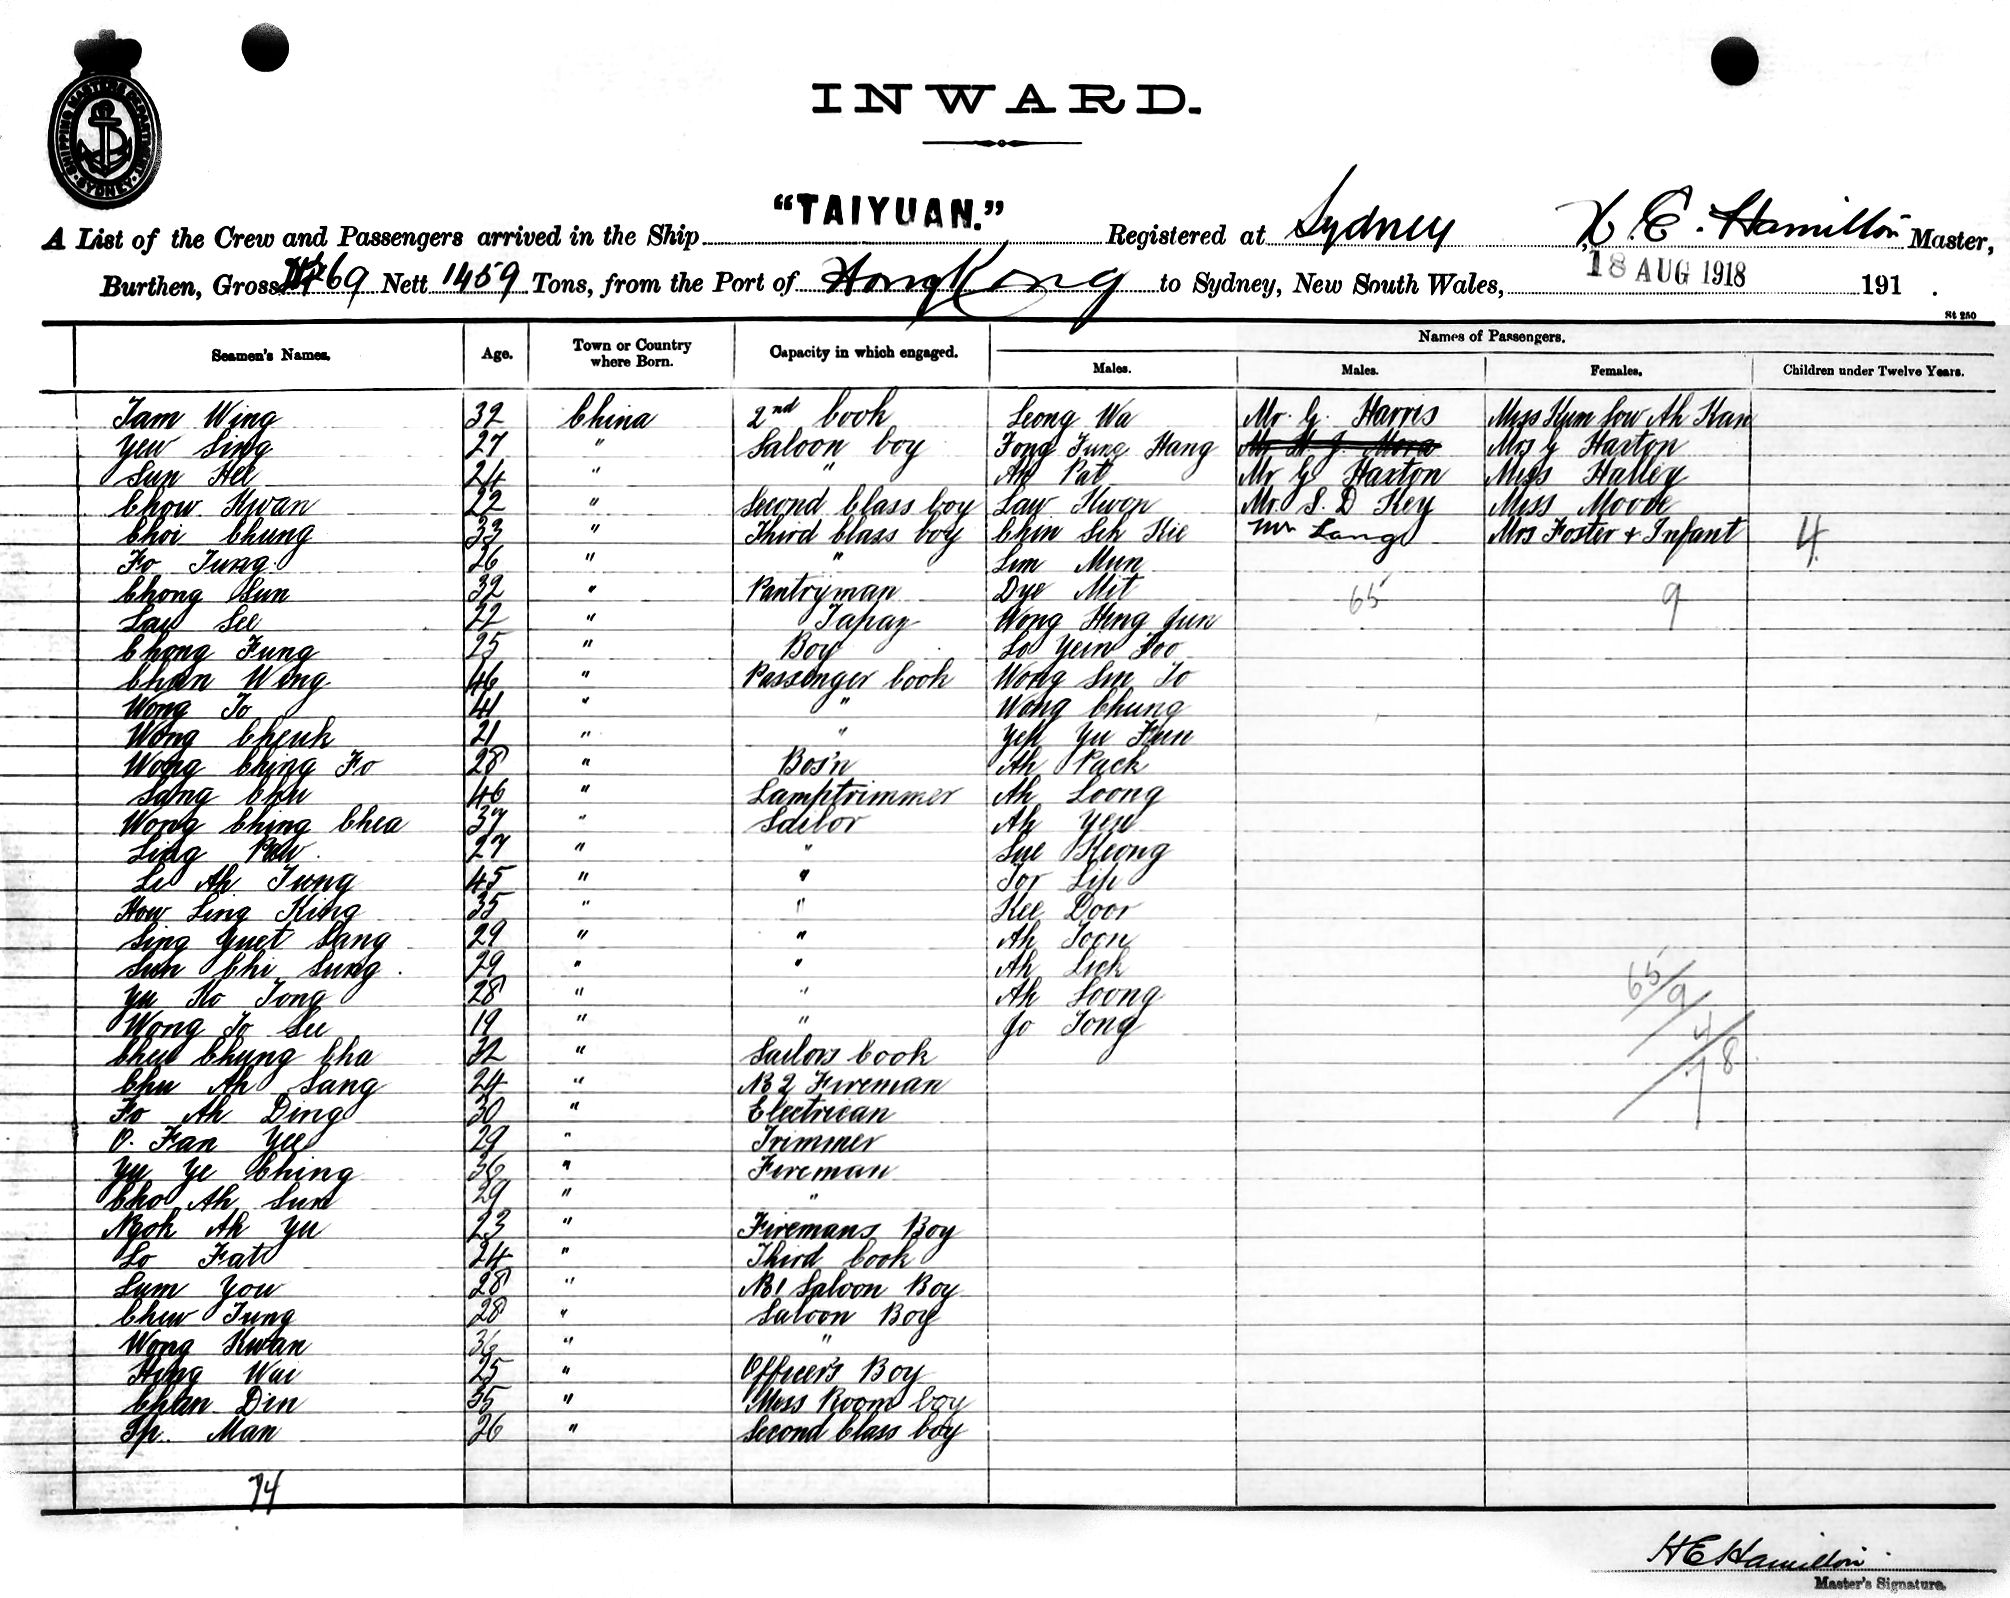 SHIPPING MASTERS DEPARTMENT SYDNEY
INWARD.
A List of the Crew and Passengers arrived in the Ship "TAIYUAN." Registered at Sydney H. E. Hamilton Master,
Burthen, Gross 69 Nett 1459 Tons, from the Port of Hong Kong to Sydney, New South Wales, 18 AUG 1918 191 .
St 250
Seamen's Names. Age. Town or Country where Born. Capacity in which engaged. Names of Passengers.
Males. Males. Females. Children under Twelve Years.
Tam Wing 32 China 2nd Cook Leong Wa Mr. G. Harris Miss Kum Sow Ah Kan
Yew Sing 27 " Saloon boy Fong Fung Hang Mrs G Haxton
Sun Hee 24 " " Ah Pat Mr G Haxton Miss Halley
Chow Kwan 22 " Second Class boy Law Kwon Mr. S. D Key Miss Moore
Choi Chung 33 " Third Class boy Chin Sek Kie Mr Lang Mrs Foster + Infant 4
Fo Tung 26 " " Lim Mun
Chong Sun 32 " Pantryman Dye Mit 65 9
Lau See 22 " Tapaz Wong Hing Jun
Chong Fung 25 " Boy Lo Yein Foo
Chan Wing 46 " Passenger Cook Wong Sin To
Wong To 41 " " Wong Chung
Wong Cheuk 21 " " Yep Yu Fun
Wong Ching Fo 28 " Bos'n Ah Pack
Sang Chu 46 " Lamptrimmer Ah Loong
Wong Ching Chea 37 " Sailor Ah Yen
Ling Paw 27 " " Sue Keong
Le Ah Tung 45 " " Tor Lip
How Ling King 35 " " Kee Door
Sing Guet Sang 29 " " Ah Toon
Sun Chi Sung 29 " " Ah Lick 65/9
Yu Ko Tong 28 " " Ah Loong
Wong To See 19 " " Jo Tong 4
Chew Chung Cha 32 " Sailors Cook 78
Chu Ah Sang 24 " No 2 Fireman
Fo Ah Ding 30 " Electrician
O. Fan Yee 29 " Trimmer
Yu Ye Ching 36 " Fireman
Cho Ah Sun 29 " "
Ngok Ah Yu 23 " Firemans Boy
Lo Fat 24 " Third Cook
Sum You 28 " No 1 Saloon Boy
Chew Tung 28 " Saloon Boy
Wong Kwan 36 " "
Hing Wai 25 " Officer's Boy
Chan Din 35 " Mess Room boy
Ip Man 26 " Second Class boy
74
H E Hamilton
Master's Signature.